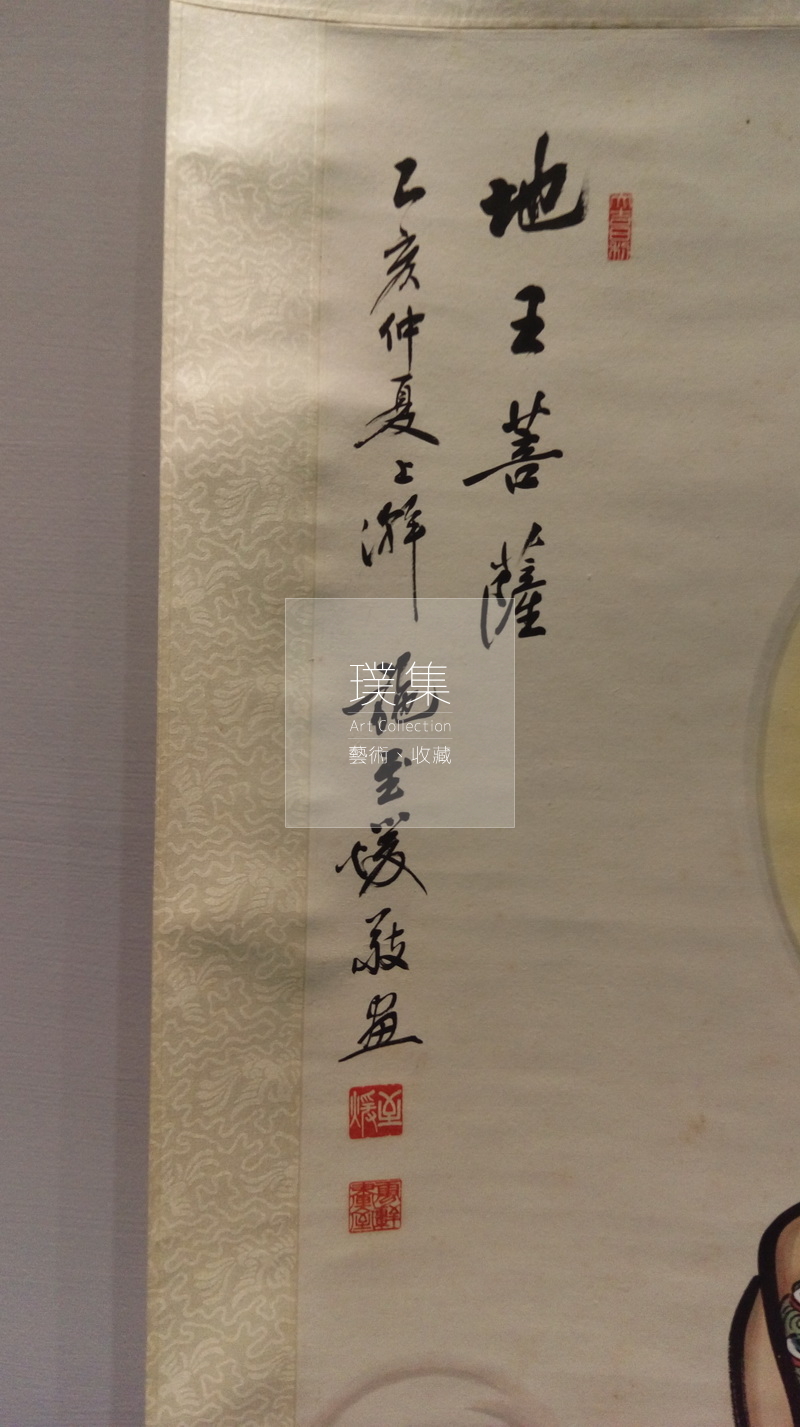 地王菩薩
乙亥仲夏上澣 施至煖敬畫
至煖
璞集
Art Collection
藝術、收藏